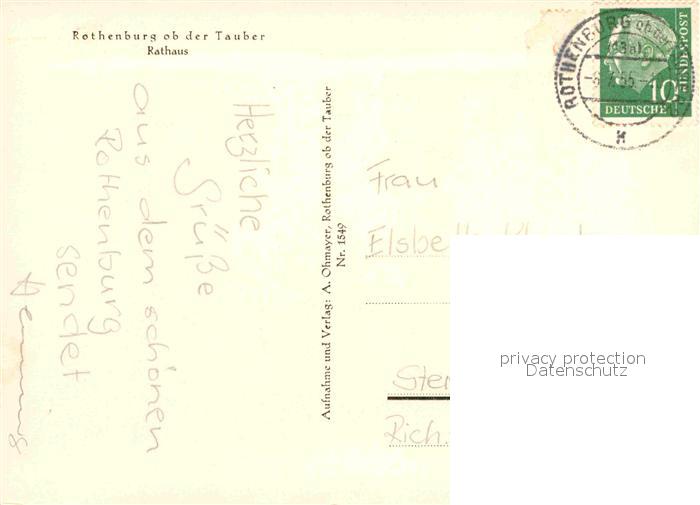 Rothenburg ob der Tauber
Rathaus
Herzliche
Grüße
aus dem schönen
Rothenburg
sendet
Henning
Aufnahme und Verlag: A. Ohmayer, Rothenburg ob der Tauber
Nr. 1549
ROTHENBURG ob der
(13a)
10
DEUTSCHE
BUNDESPOST
Frau
Rich.
privacy protection
Datenschutz